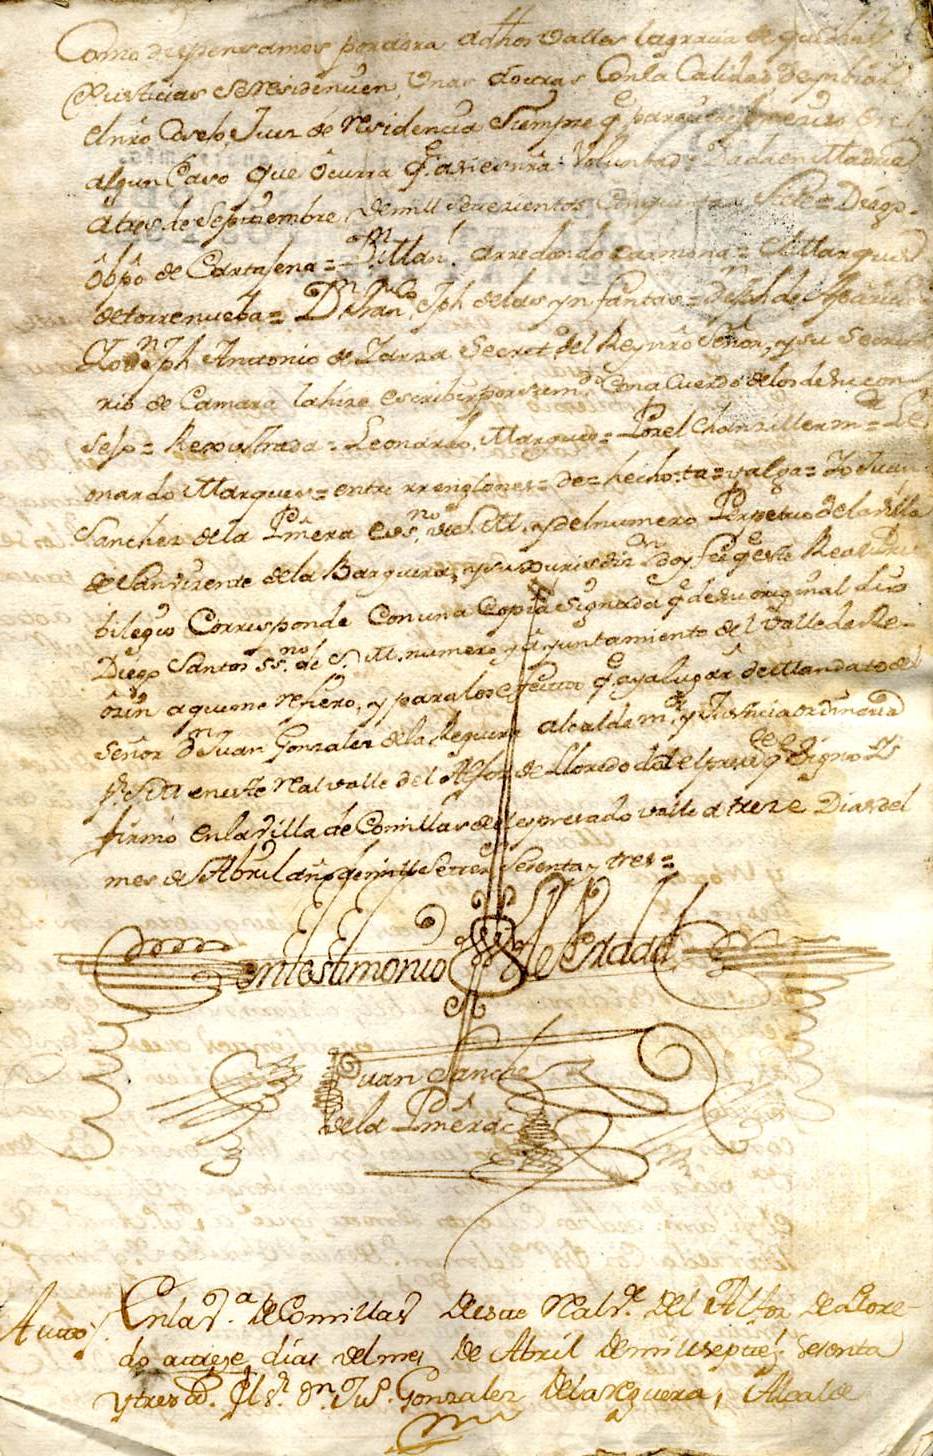 Como dispensamos por aora a dhos Valles la gracia de que
Justicias se residencien, unas a otras Con la Calidad de
el nro Consejo Juez de residencia Siempre q̃
algun Caso que ocurra q̃ asi es nr̃a Voluntad: Dada en Madrid
a tres de Septiembre de mill setezientos Cinquenta y Siete = Diego
Obpõ de Cartajena = Dn Millan. Arredondo Carmona = el Marques
de torrenueba = Dn Franco Jph de las Ynfantas =
Yo Dn Jph Antonio de Yarza Secretº del Rey nrõ Señor, y su Secreta
rio de Camara la hize escribir por su mdº Con aCuerdo de los de su con
sejo = Rexistrada = Leonardo Marques = Por el Chanziller mr = Le
onardo Marques = entre rrenglones = de = hecho: ta = valga = Yo Juan
Sanchez de la Pmẽra essno de S. M. y del numero Perpetuo de la villa
de San Vizente de la Barquera, y su Jurisdizon doy fee q̃ este Real Pri
bilegio Corresponde Con una Copia signada q̃ de su original dio
Diego Santos ssno de S. M. numero y Ayuntamiento del Valle de Re-
ozin a que me refiero, y para los efectos q̃ aya lugar de Mandato del
señor Dn Juan Gonzalez de la Reguera alcalde mr y Justicia ordinaria
por S. M. en este Real valle del Alfoz de Lloredo doi el prest.e q̃ signo Y
firmo en la villa de Comillas de el espresado valle a treze Dias del
mes de Abril año de mill Setezs Sesenta y tres =
en testimonio de Verdad
Juan Sanchez
de la Pmẽra
Auto / En la Vª de Comillas deste Real Ve del Alfoz de Llore-
do a treze dias del mes de Abril de mil sepneˢ sesenta
y tres aˢ. El Sr Dn Juˢ Gonzalez de la Reguera, Alcalde